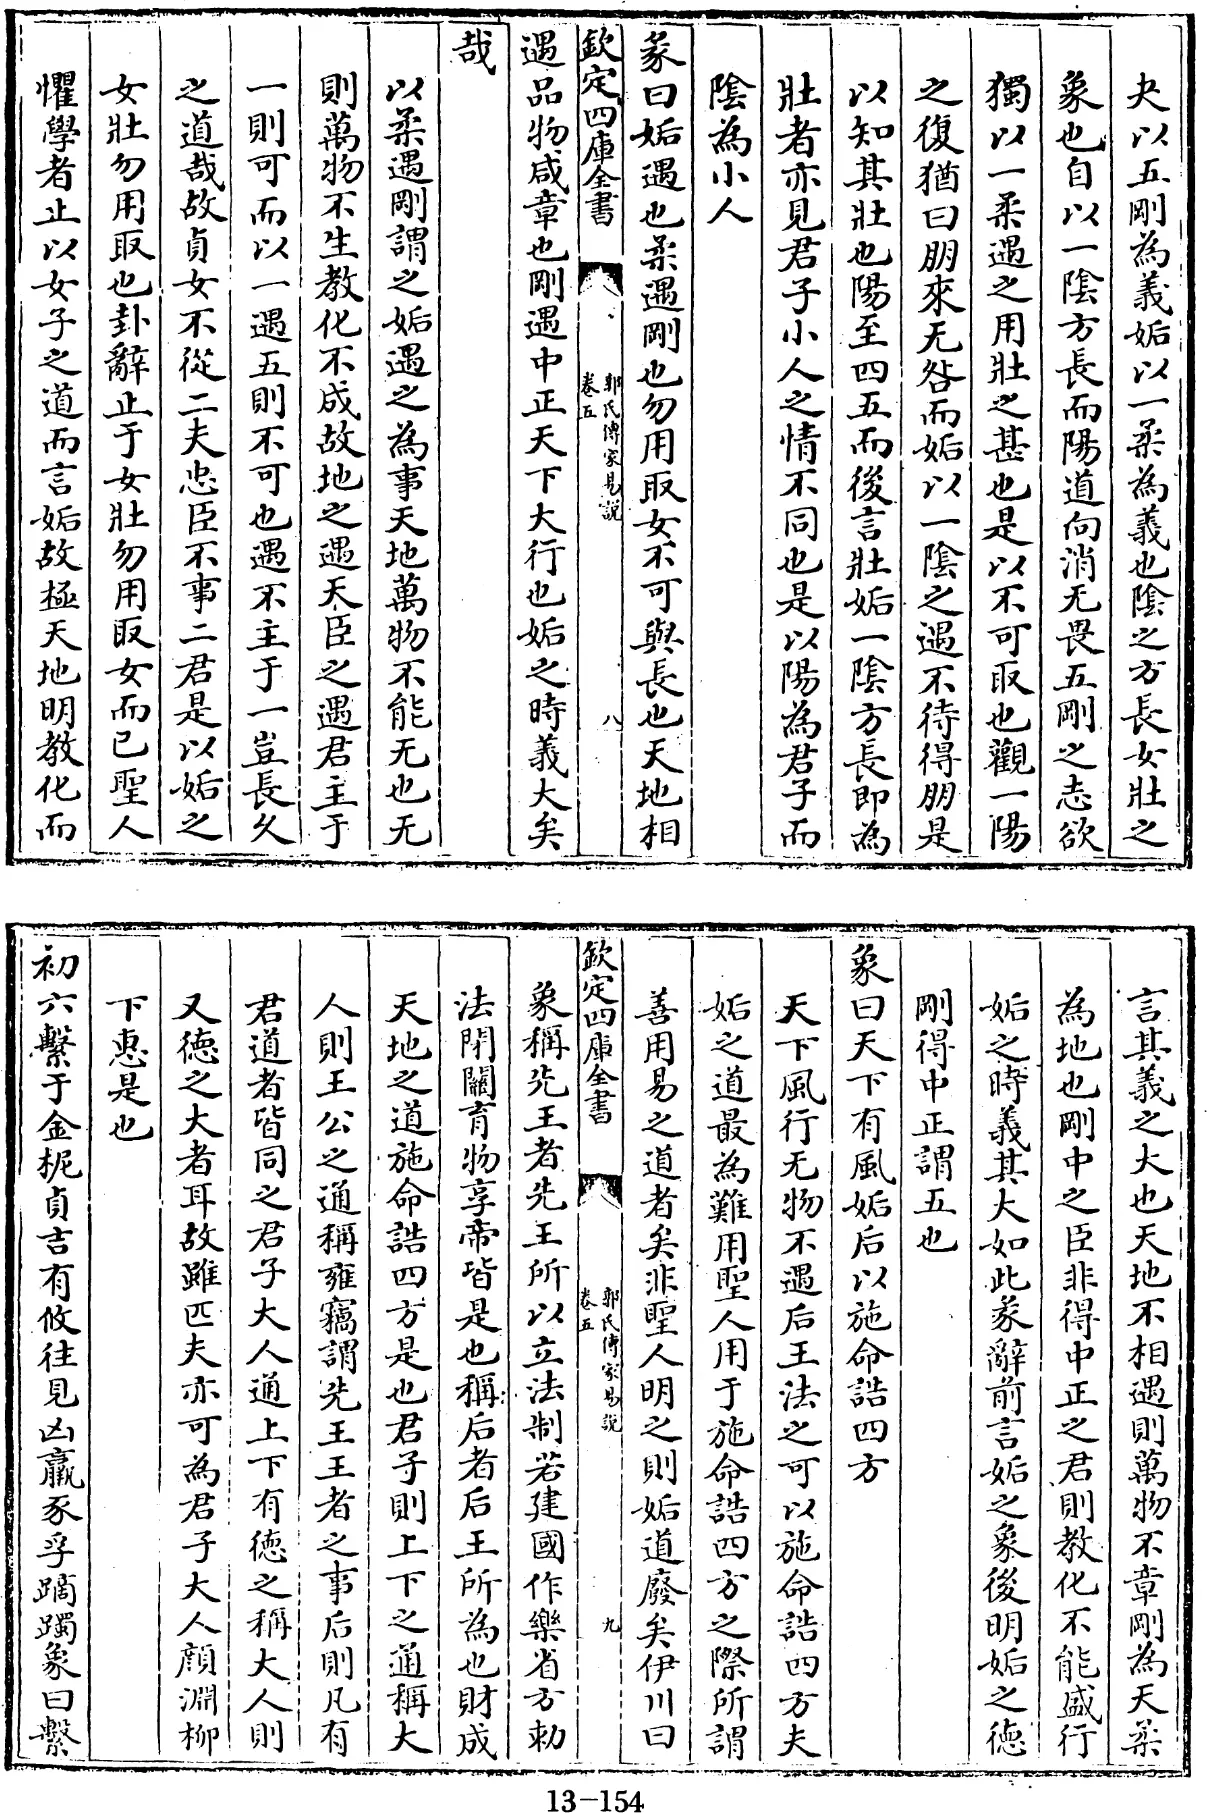 夬以五剛為義姤以一柔為義也陰之方長女壯之
象也自以一陰方長而陽道向消无畏五剛之志欲
獨以一柔遇之用壯之甚也是以不可取也觀一陽
之復猶曰朋來无咎而姤以一陰之遇不待得朋是
以知其壯也陽至四五而後言壯姤一陰方長即為
壯者亦見君子小人之情不同也是以陽為君子而
陰為小人
彖曰姤遇也柔遇剛也勿用取女不可與長也天地相
欽定四庫全書
郭氏傳家易說
卷五
八
遇品物咸章也剛遇中正天下大行也姤之時義大矣
哉
以柔遇剛謂之姤遇之為事天地萬物不能无也无
則萬物不生教化不成故地之遇天臣之遇君主于
一則可而以一遇五則不可也遇不主于一豈長久
之道哉故貞女不從二夫忠臣不事二君是以姤之
女壯勿用取也卦辭止于女壯勿用取女而已聖人
懼學者止以女子之道而言姤故極天地明教化而
言其義之大也天地不相遇則萬物不章剛為天柔
為地也剛中之臣非得中正之君則教化不能盛行
姤之時義其大如此彖辭前言姤之象後明姤之德
剛得中正謂五也
象曰天下有風姤后以施命誥四方
天下風行无物不遇后王法之可以施命誥四方夫
姤之道最為難用聖人用于施命誥四方之際所謂
善用易之道者矣非聖人明之則姤道廢矣伊川曰
欽定四庫全書
郭氏傳家易說
卷五
九
象稱先王者先王所以立法制若建國作樂省方勅
法閉關育物享帝皆是也稱后者后王所為也財成
天地之道施命誥四方是也君子則上下之通稱大
人則王公之通稱雍竊謂先王王者之事后則凡有
君道者皆同之君子大人通上下有德之稱大人則
又德之大者耳故雖匹夫亦可為君子大人顔淵柳
下惠是也
初六繫于金柅貞吉有攸往見凶羸豕孚蹢躅象曰繫
13-154